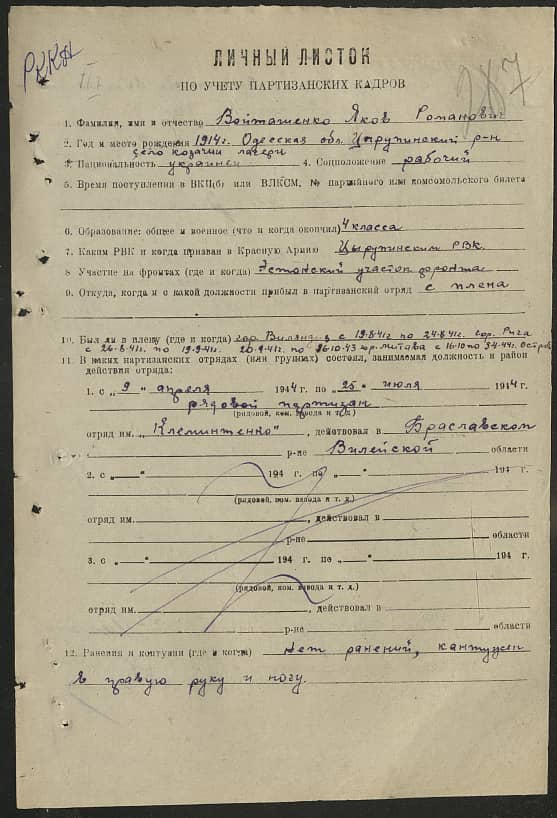 РККА
287
ЛИЧНЫЙ ЛИСТОК
ПО УЧЕТУ ПАРТИЗАНСКИХ КАДРОВ
1. Фамилия, имя и отчество Войташенко Яков Романович
2. Год и место рождения 1914 г. Одесская обл. Цюрупинский р-н
село козачии лагери
3. Национальность украинец 4. Соцположение рабочий
5. Время поступления в ВКП(б) или ВЛКСМ, № партийного или комсомольского билета
6. Образование: общее и военное (что и когда окончил) 4 класса
7. Каким РВК и когда призван в Красную Армию Цюрупинским РВК.
8 Участие на фронтах (где и когда) Эстонский участок фронта
9. Откуда, когда и с какой должности прибыл в партизанский отряд с плена
10. Был ли в плену (где и когда) гор. Вилянд з с 19.8.41г. по 24.8.41г. гор. Рига
с 26.8.41г. по 19.9.41г. 20.9.41г. по 16.10.43 гор. Митава с 16.10 по 3.4.44г. Остров
11. В каких партизанских отрядах (или группах) состоял, занимаемая должность и район
действия отряда:
1. с „ 9 “ апреля 1944 г. по „ 25 “ июля 1944 г.
рядовой партизан
(рядовой, ком. взвода и т. д.)
отряд им. „Клеминтженко“, действовал в Браславском
р-не Вилейской области
2. с „ “ 194 г. по „ “ 194 г.
(рядовой, ком. взвода и т. д.)
отряд им. , действовал в
р-не области
3. с „ “ 194 г. по „ “ 194 г.
(рядовой, ком. взвода и т. д.)
отряд им. , действовал в
р-не области
12. Ранения и контузии (где и когда) нет ранений, кантужен
в правую руку и ногу.